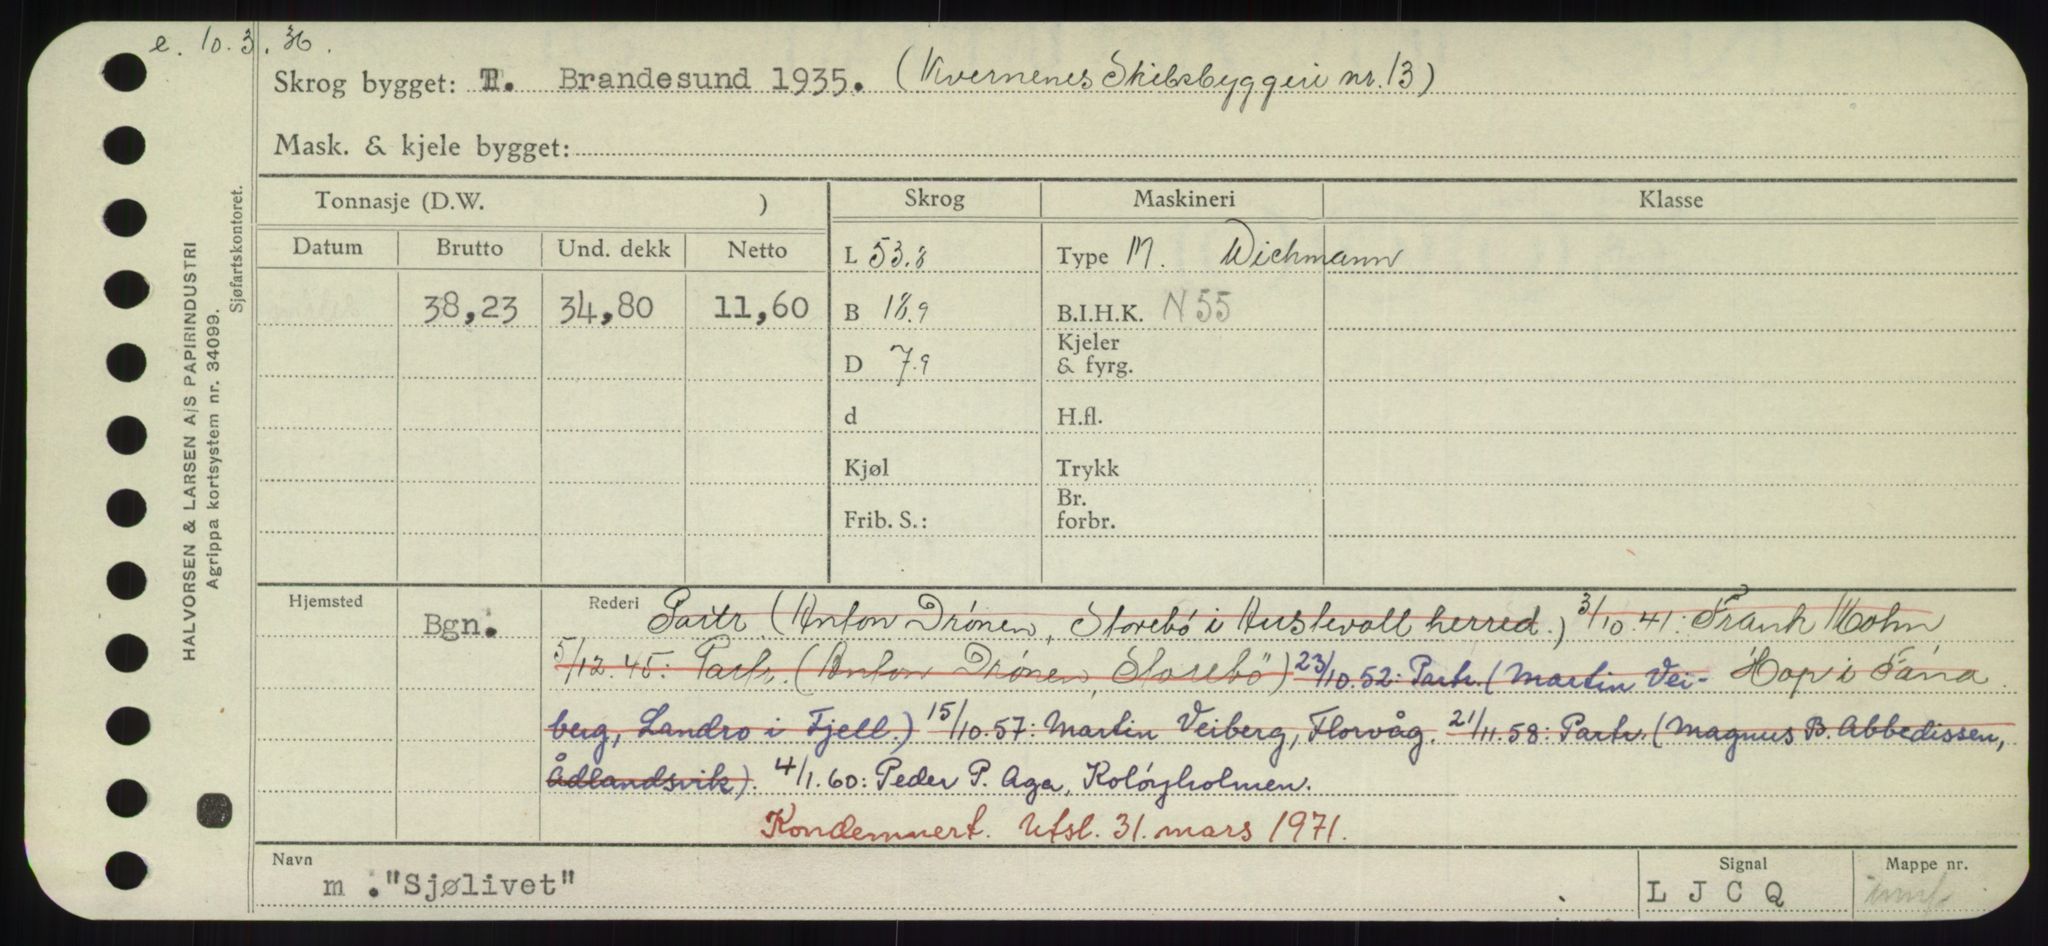 e. 10.3.36.
Skrog bygget: T. Brandesund 1935. (Kvernenes Skibsbyggeri nr. 13)
Mask. & kjele bygget:
HALVORSEN & LARSEN A/S PAPIRINDUSTRI
Agrippa kortsystem nr. 34099.
Sjøfartskontoret.
Tonnasje (D.W. ) Skrog Maskineri Klasse
Datum Brutto Und. dekk Netto L 53.8 Type M. Wichmann
38,23 34,80 11,60 B 18.9 B.I.H.K. N 55
D 7.9 Kjeler & fyrg.
d H.fl.
Kjøl Trykk
Frib. S.: Br. forbr.
Hjemsted Bgn. Rederi Partr. (Anton Drönen, Storebö i Austevoll herred.) 3/10.41: Frank Mohn
5/12.45: Partr. (Anton Drönen, Storebö) 23/10.52: Partr. (Martin Vei- Hop i Fana.
berg, Landro i Fjell.) 15/10.57: Martin Veiberg, Florvåg. 21/11.58: Partr. (Magnus B. Abbedissen,
Ådlandsvik). 4/1.60: Peder P. Aga, Kolöyholmen.
Kondemnert. Utsl. 31. mars 1971.
Navn Signal Mappe nr.
m ."Sjølivet" L J C Q